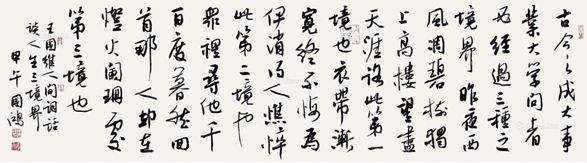 古今之成大事
業大學問者
必經過三種之
境界昨夜西
風凋碧樹獨
上高樓望盡
天涯路此第一
境也衣帶漸
寬終不悔為
伊消得人憔悴
此第二境也
眾裡尋他千
百度驀然回
首那人卻在
燈火闌珊處
此第三境也
王國維人間詞話
談人生三境界
甲午國鴻